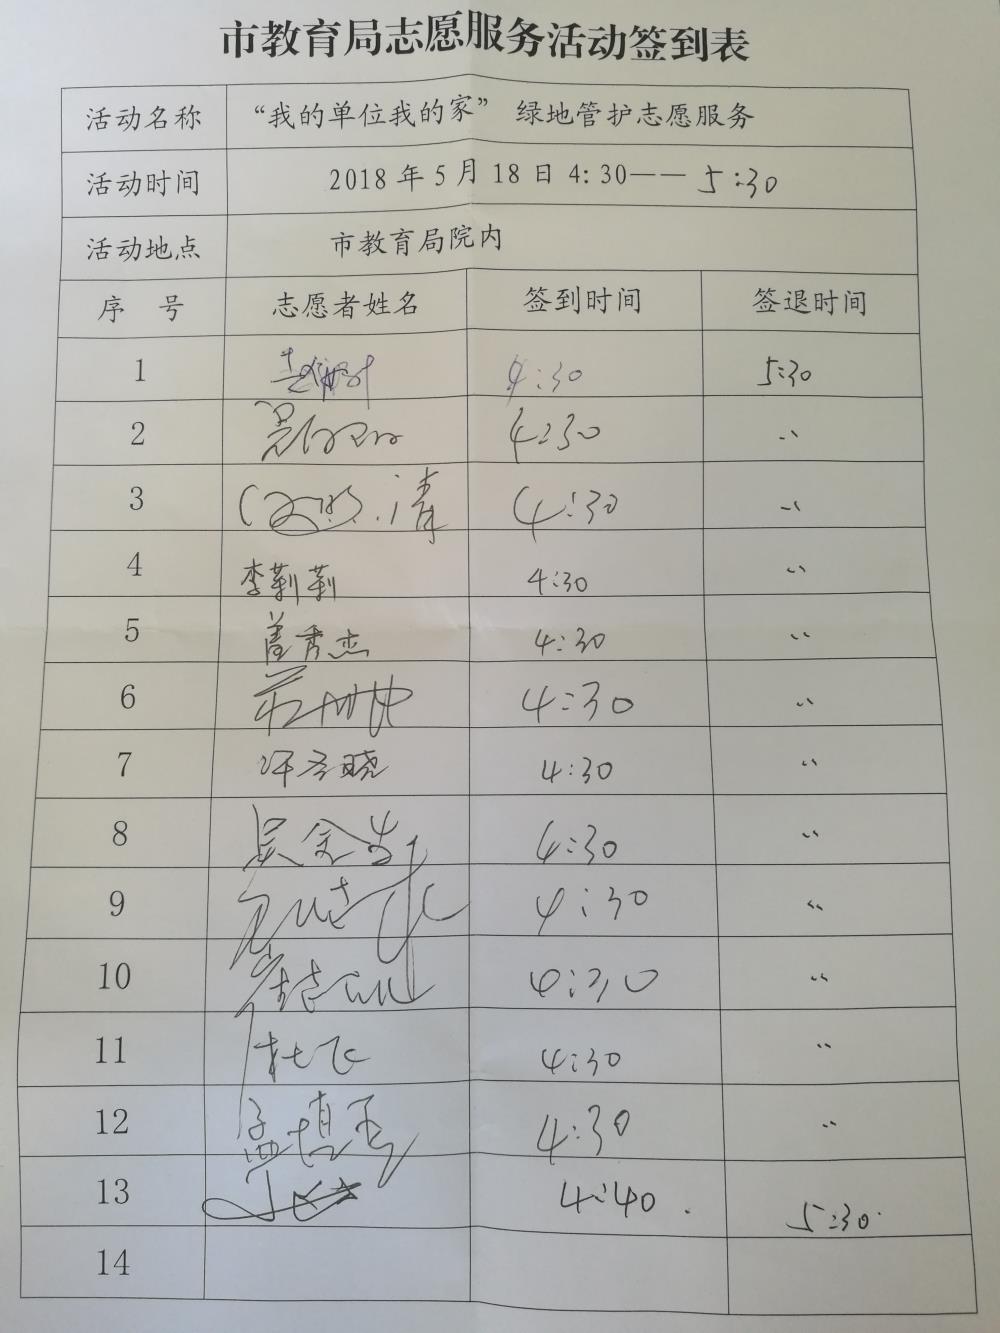 市教育局志愿服务活动签到表
活动名称 “我的单位我的家” 绿地管护志愿服务
活动时间 2018年5月18日 4:30——5:30
活动地点 市教育局院内
序 号 志愿者姓名 签到时间 签退时间
1 4:30 5:30
2 4:30 〃
3 清 4:30 〃
4 李莉莉 4:30 〃
5 秀杰 4:30 〃
6 4:30 〃
7 晓 4:30 〃
8 吴金 4:30 〃
9 4:30 〃
10 4:30 〃
11 杜飞 4:30 〃
12 孟 4:30 〃
13 4:40 5:30
14